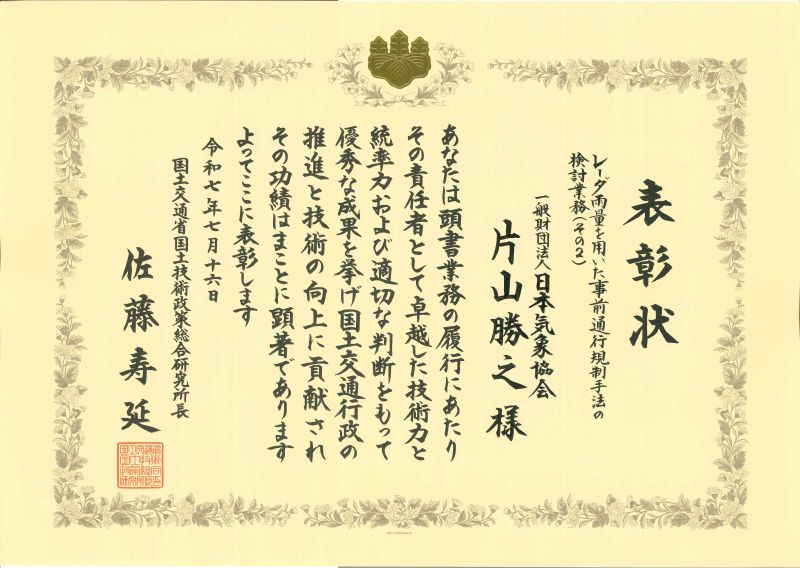 表彰状
レーダ雨量を用いた事前通行規制手法の
検討業務(その2)
一般財団法人日本気象協会
片山勝之様
あなたは頭書業務の履行にあたり
その責任者として卓越した技術力と
統率力および適切な判断をもって
優秀な成果を挙げ国土交通行政の
推進と技術の向上に貢献され
その功績はまことに顕著であります
よってここに表彰します
令和七年七月十六日
国土交通省国土技術政策総合研究所長
佐藤寿延